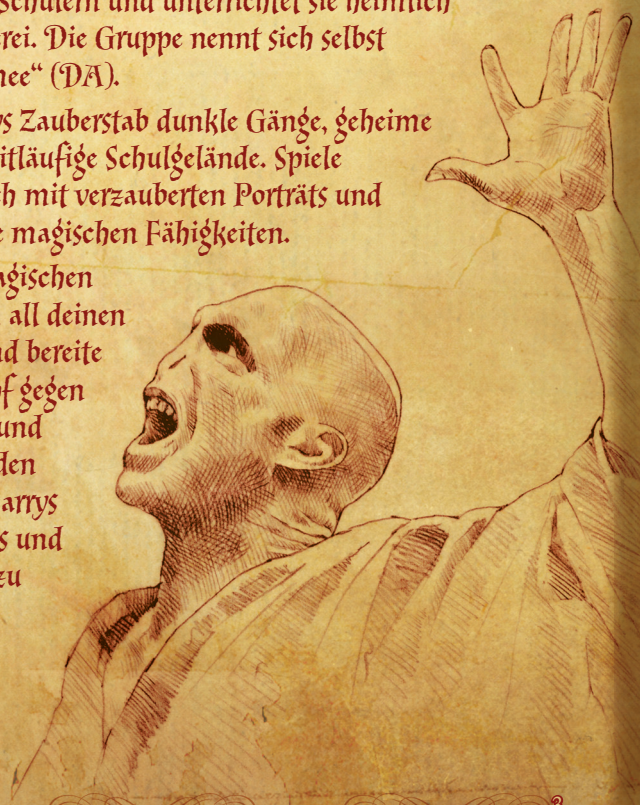 Schülern und unterrichtet sie heimlich
rei. Die Gruppe nennt sich selbst
nee“ (DA).
ys Zauberstab dunkle Gänge, geheime
itläufige Schulgelände. Spiele
ch mit verzauberten Porträts und
e magischen Fähigkeiten.
agischen
all deinen
nd bereite
of gegen
und
den
arrys
s und
zu